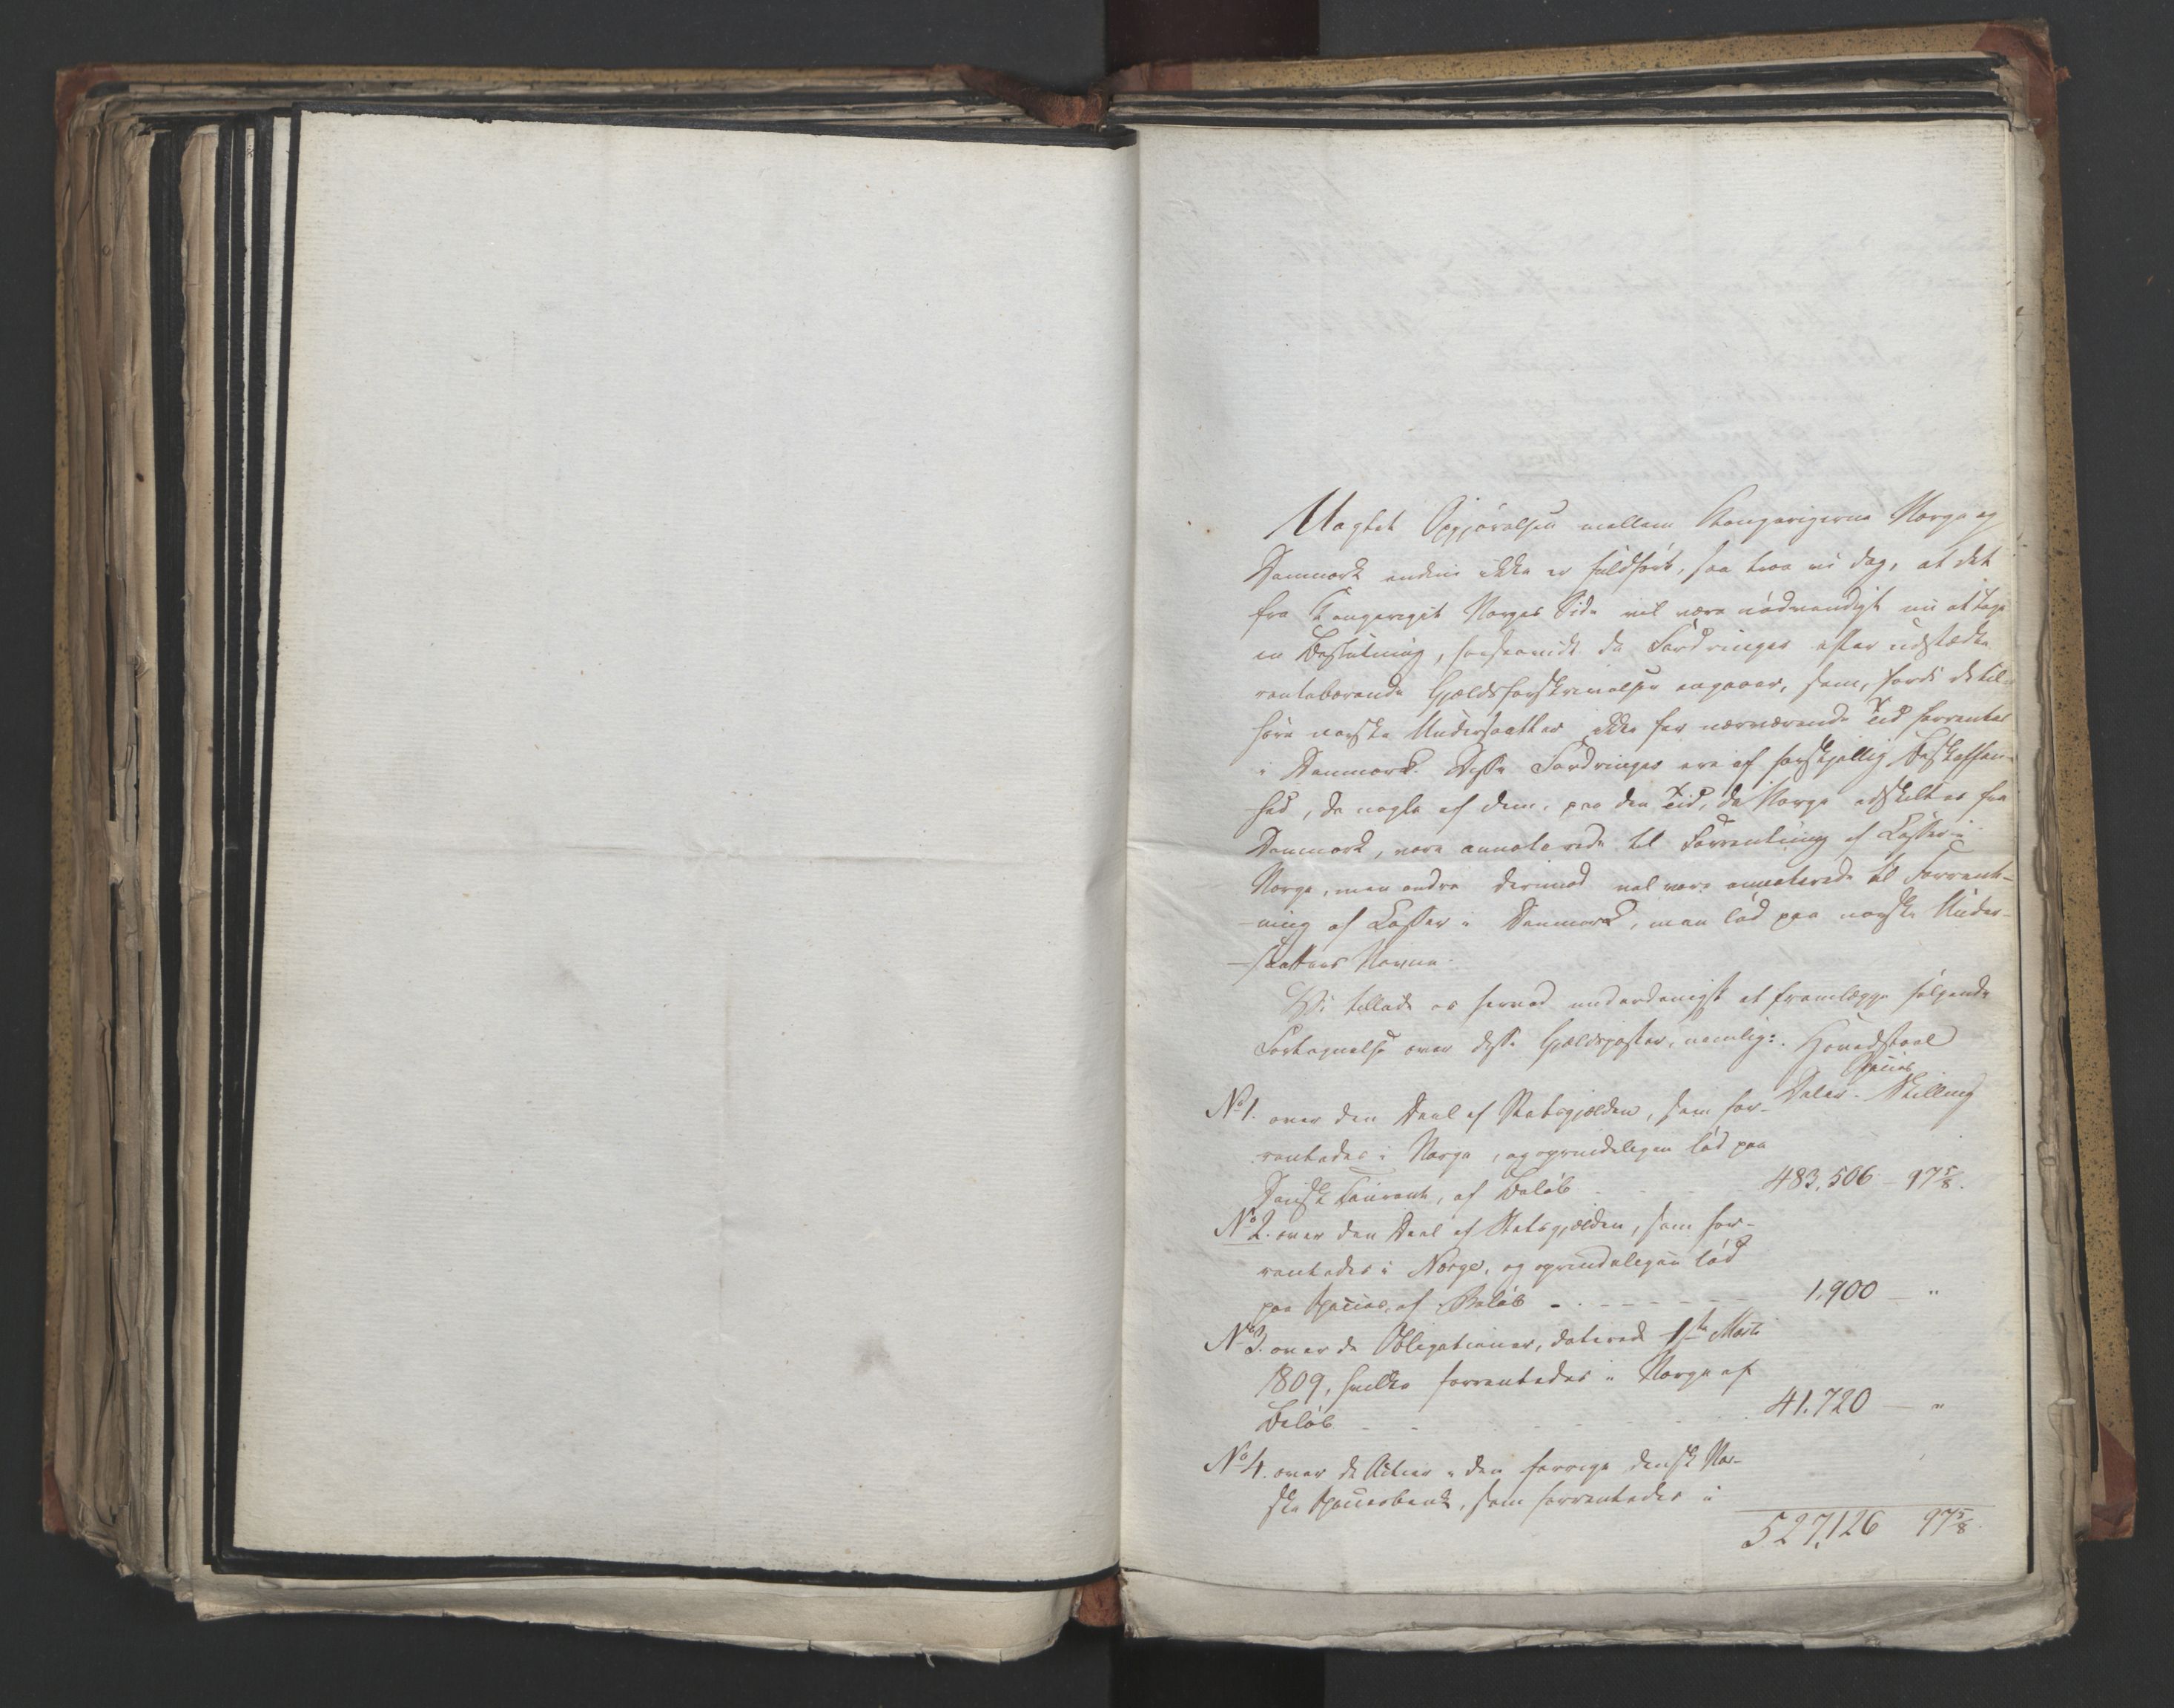 Uagtet Opgjørelsen mellem Kongerigerne Norge og
Danmark endnu ikke er fuldført, saa troe vi dog, at det
fra Kongeriget Norges Side vil være nødvendigt nu at tage
en Beslutning, forsaavidt de Fordringer efter udstædte
rentebærende Gjældsforskrivelser angaaer, som, fordi de til-
høre norske Undersaatter ikke for nærværende Tid forrentes
i Danmark. Disse Fordringer ere af forskjellig Beskaffen-
hed, da nogle af dem, paa den Tid, da Norge adskiltes fra
Danmark, vare annoterede til Forrentning af Casser i
Norge, men andre derimod vel vare annoterede til Forrent-
-ning af Casser i Danmark, men lød paa norske Under-
-saatters Navne.
Vi tillade os herved underdanigst at fremlægge følgende
Fortegnelse over disse Gjældsposter, nemlig: Hovedstoel
Species
Daler. Skilling
No 1. over den Deel af Statsgjælden, som for-
rentedes i Norge, og oprindeligen lød paa
Dansk Courant, af Beløb 483,506 - 97 5/8.
No 2. over den Deel af Statsgjælden, som for-
rentedes i Norge, og oprindeligen lød
paa Species, af Beløb - - - - - - 1,900 - "
No 3. over de Obligationer, daterede 1ste Marti
1809, hvilke forrentedes i Norge af
Beløb - - - - - 41,720 - "
No 4. over de Actier i den forrige dansk Nor-
ske Speciesbank, som forrentedes i
527,126 97 5/8.